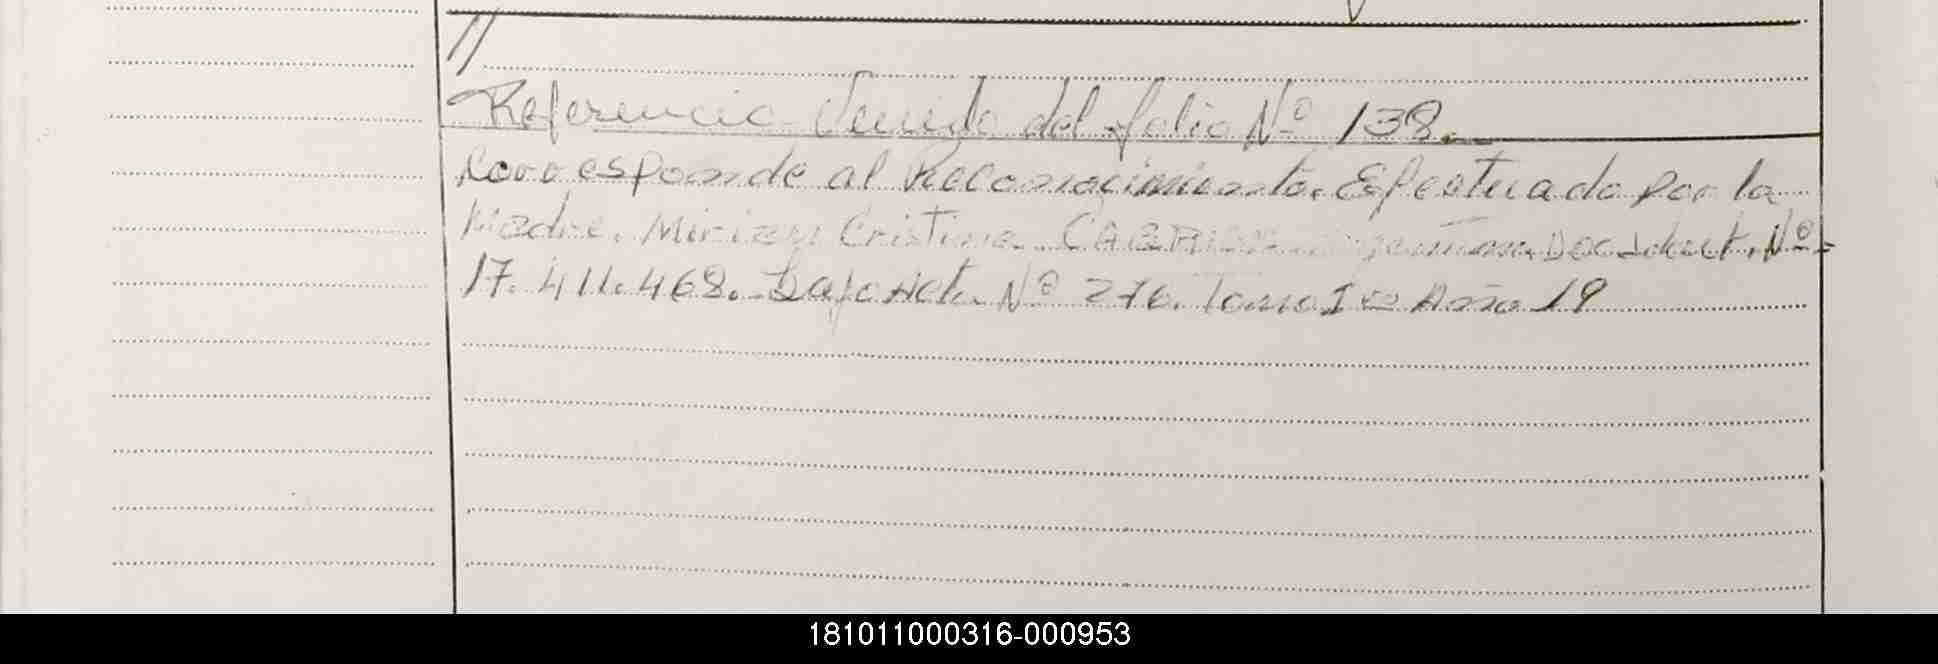 //
Referencia Venida del folio Nº 138.
Corresponde al Reconocimiento. Efectuado por la
Madre. Cristina. Doc. Ident. Nº
17.411.468. Bajo Acta Nº 276. Tomo I = Año 19
181011000316-000953